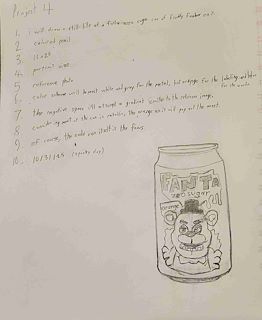 Project 4
1. i will draw a still-life of a fanta zero sugar can of Freddy Fazbear on it.
2. colored pencil
3. 11 x 14
4. portrait
5. reference photo
6. color scheme will be most white and grey for the metal, but orange for the labeling and letters
for the
7. the negative space will attempt a gradient similar to the reference image.
8. considering most of the can is metallic, the orange on it will pop out the most.
9. of course, the soda can itself is the focus.
10. 10/31/25
FANTA
ZERO SUGAR
orange